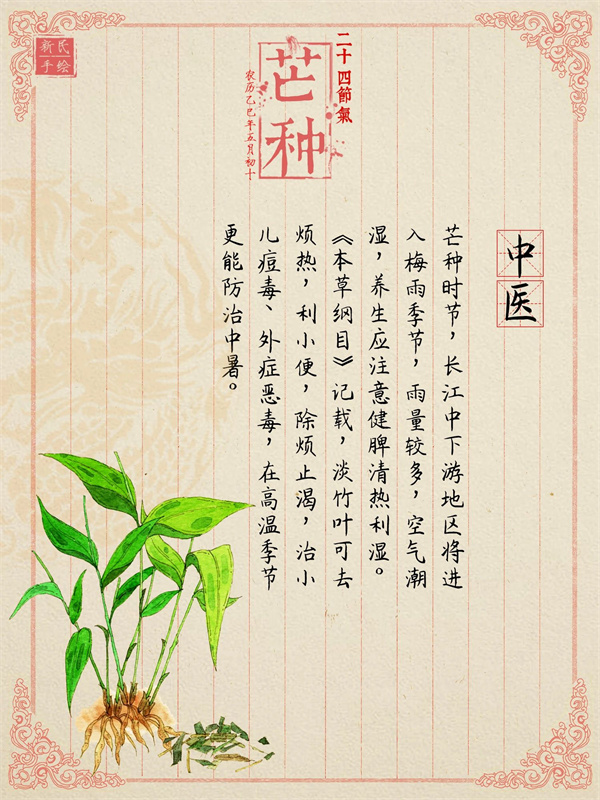 新民
手绘
二十四節氣
芒种
农历乙巳年五月初十
中医
芒种时节，长江中下游地区将进
入梅雨季节，雨量较多，空气潮
湿，养生应注意健脾清热利湿。
《本草纲目》记载，淡竹叶可去
烦热，利小便，除烦止渴，治小
儿痘毒、外症恶毒，在高温季节
更能防治中暑。